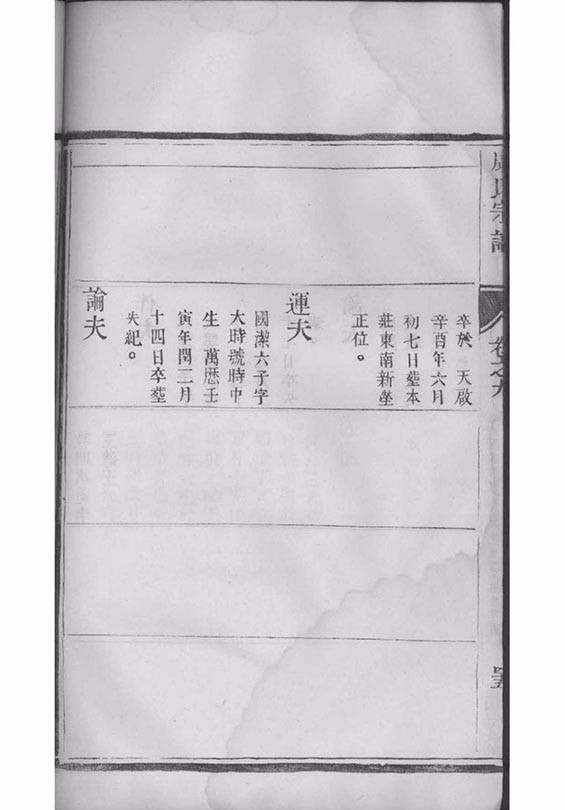 卒於 天啟
辛酉年六月
初七日塟本
莊東南新塋
正位。
運夫
國潔六子字
大時號時中
生 萬厯壬
寅年閏二月
十四日卒塟
失紀。
論夫
氏宗譜
卷之九